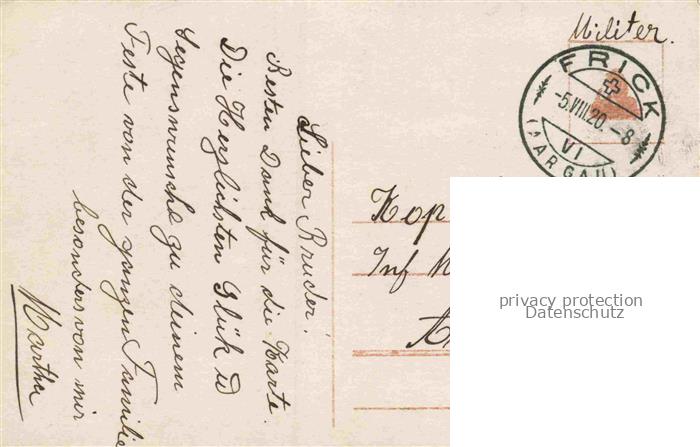 Militer.
FRICK
-5.VIII.20.-8
VI
(AARGAU)
Lieber Bruder!
Besten Dank für die Karte.
Die Herzlichsten Glük u
Segenswunsche zu deinem
Feste von der ganzen Familie
besonders von mir
Martha
Kop
Inf
privacy protection
Datenschutz